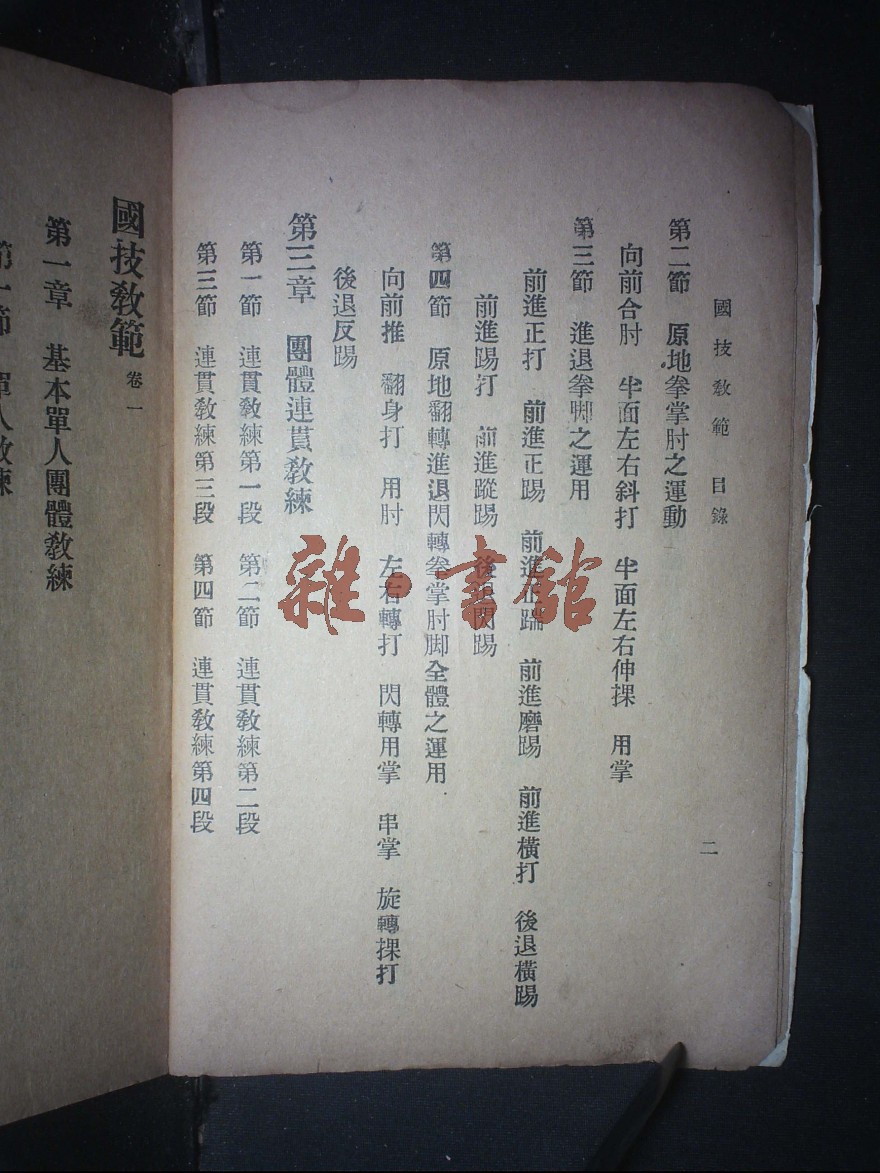 國技敎範 目錄 二
第二節 原地拳掌肘之運動
向前合肘 半面左右斜打 半面左右伸捰 用掌
第三節 進退拳脚之運用
前進正打 前進正踢 前進正踹 前進磨踢 前進橫打 後退橫踢
前進踢打 前進蹤踢 後退閃踢
第四節 原地翻轉進退閃轉拳掌肘脚全體之運用
向前推 翻身打 用肘 左右轉打 閃轉用掌 串掌 旋轉捰打
後退反踢
第三章 團體連貫敎練
第一節 連貫敎練第一段 第二節 連貫敎練第二段
第三節 連貫敎練第三段 第四節 連貫敎練第四段
國技敎範 卷一
第一章 基本單人團體敎練
第一節 單人敎練
雜·書館